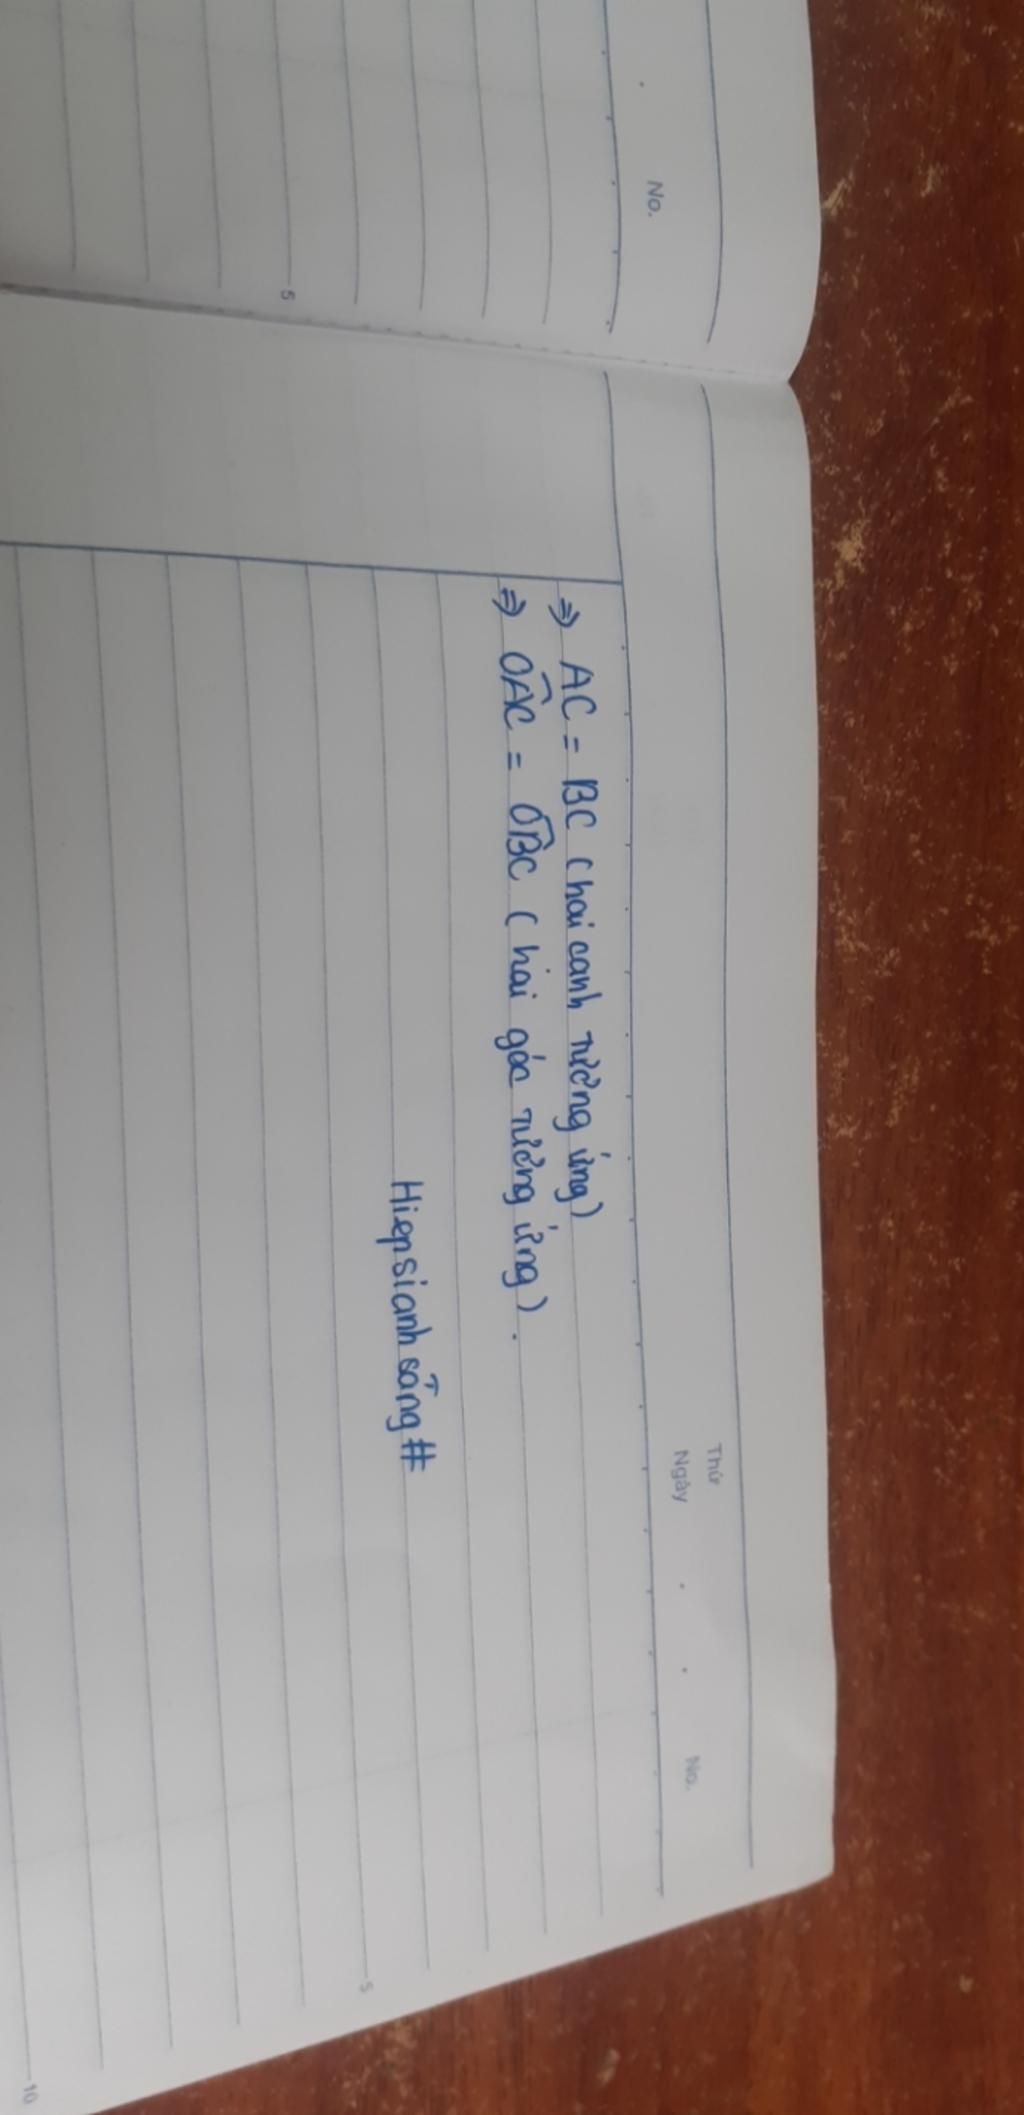 No.
5
Thứ
Ngày . . No.
=> AC = BC (hai cạnh tương ứng)
=> OÂC = OB̂C (hai góc tương ứng).
Hiepsianhsang#
5
10